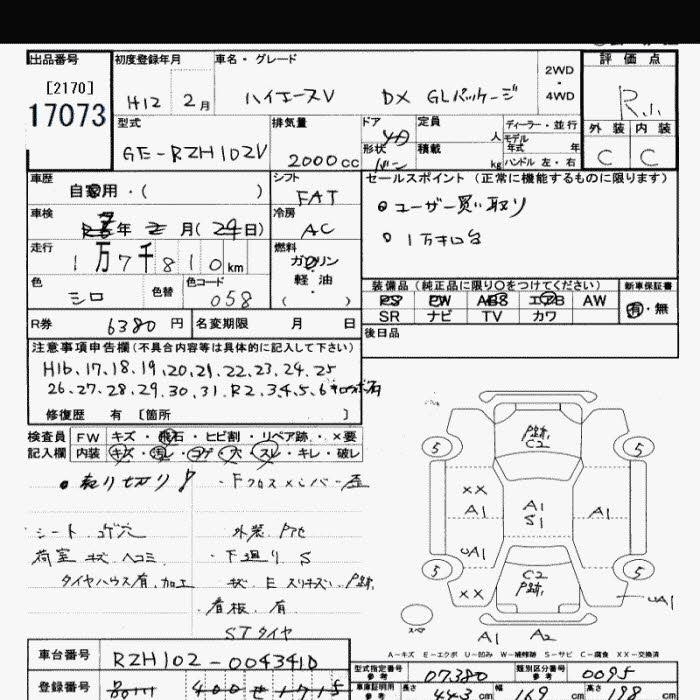 出品番号
[2170]
17073
初度登録年月
H12 2月
車名・グレード
ハイエースV DX GLパッケージ
2WD
・
4WD
評価点
R.
外装 内装
C C
型式
GE-RZH102V
排気量
2000cc
ドア
形状 バン
定員 人
積載 kg
ディーラー・並行
モデル
年式 年
ハンドル 左・右
車歴
自家用・( )
シフト
FAT
セールスポイント(正常に機能するものに限ります)
ユーザー買い取り
1万キロ台
車検
年 2月(29日)
冷房
AC
走行
1万7千810km
燃料
ガソリン
軽油
( )
色
シロ
色替
色コード
058
装備品(純品に限り○をつけてください)
PS PW ABS エアB AW
SR ナビ TV カワ
新車保証書
有・無
R券 6380円
名変期限 月 日
後日品
注意事項申告欄(不具合内容等は具体的に記入して下さい)
H16.17.18.19.20.21.22.23.24.25
26.27.28.29.30.31.R2.3.4.5.6
修復歴 有 〔箇所 〕
検査員
記入欄
FW キズ・飛石・ヒビ割・リペア跡・×要
内装 キズ・汚レ・コゲ・穴・スレ・キレ・破レ
売り切り!
・Fクロスメンバー
シート.コゲ穴
外装.
荷室 キズ.ヘコミ
・下廻り S
タイヤハウス有.加工
キズ.E スリキズ.P跡.
・看板.有
STタイヤ
P跡.
C2
5 5
XX
A1
A1
S1
A1
UA1
C2
P跡.
5 5
XX
UA1
スペア
A1 A2
A-キズ E-エクボ U-凹み W-補修跡 S-サビ C-腐食 XX-交換済
車台番号
RZH102-0043410
型式指定番号
参考
07380
類別区分番号
参考
0095
登録番号
400せ1715
車庫証明用
参考
長さ 443cm
幅 169cm
高さ 198cm